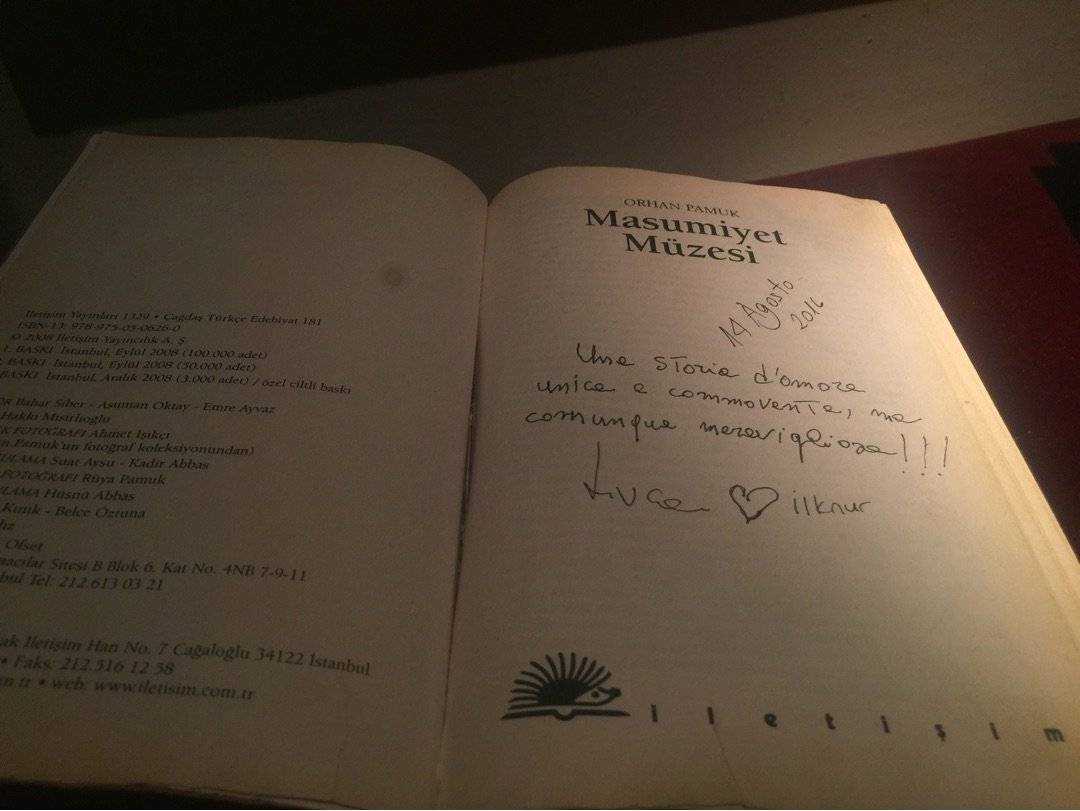 İletişim Yayınları 1329 • Çağdaş Türkçe Edebiyat 181
ISBN-13: 978-975-05-0626-0
© 2008 İletişim Yayıncılık A. Ş.
1. BASKI İstanbul, Eylül 2008 (100.000 adet)
. BASKI İstanbul, Eylül 2008 (50.000 adet)
BASKI İstanbul, Aralık 2008 (3.000 adet) / özel ciltli baskı
ÖR Bahar Siber - Asuman Oktay - Emre Ayvaz
Hakkı Mısırlıoğlu
K FOTOĞRAFI Ahmet Işıkçı
n Pamuk'un fotoğraf koleksiyonundan)
ULAMA Suat Aysu - Kadir Abbas
FOTOĞRAFI Rüya Pamuk
LAMA Hüsnü Abbas
Kırık - Belce Öztuna
Ofset
acılar Sitesi B Blok 6. Kat No. 4NB 7-9-11
bul Tel: 212.613 03 21
ak İletişim Han No. 7 Cağaloğlu 34122 İstanbul
• Faks: 212.516 12 58
m.tr • web: www.iletisim.com.tr
ORHAN PAMUK
Masumiyet
Müzesi
14 Agosto
2016
Una storia d'amore
unica e commovente, ma
comunque meravigliosa!!!
Luca ♡ ilknur
iletişim